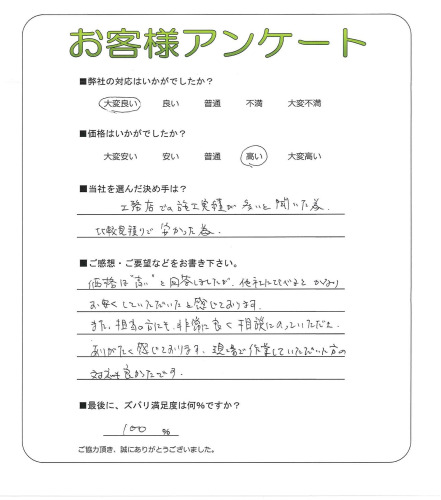 お客様アンケート
■弊社の対応はいかがでしたか？
大変良い 良い 普通 不満 大変不満
■価格はいかがでしたか？
大変安い 安い 普通 高い 大変高い
■当社を選んだ決め手は？
工務店での施工実績が多いと聞いた為。
比較見積りで安かった為。
■ご感想・ご要望などをお書き下さい。
価格は"高い"と回答しましたが、他社にくらべるとかなり
お安くしていただいたと感じております。
また、担当の方にも非常に良く相談にのっていただき、
ありがたく感じております。現場で作業していただいた方の
対応も良かったです。
■最後に、ズバリ満足度は何％ですか？
100 ％
ご協力頂き、誠にありがとうございました。